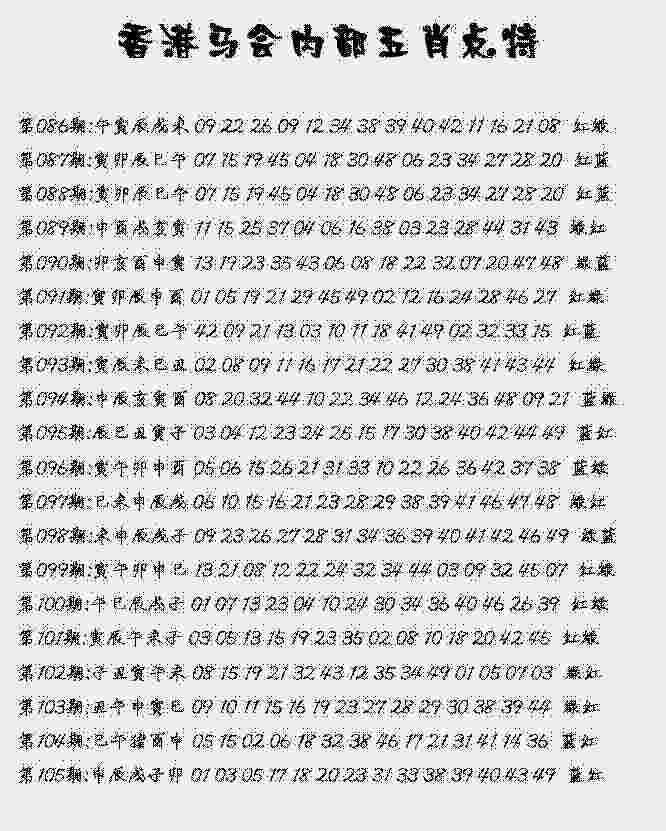 香港马会内部五肖点特
第086期:午寅辰戌未 09 22 26 09 12 34 38 39 40 42 11 16 21 08 红绿
第087期:寅卯辰巳午 07 15 19 45 04 18 30 48 06 23 34 27 28 20 红蓝
第088期:寅卯辰巳午 07 15 19 45 04 18 30 48 06 23 34 27 28 20 红蓝
第089期:申酉戌亥寅 11 15 25 37 04 06 16 38 03 23 28 44 31 43 绿红
第090期:卯亥酉申寅 13 19 23 35 43 06 08 18 22 32 07 20 47 48 绿蓝
第091期:寅卯辰申酉 01 05 19 21 29 45 49 02 12 16 24 28 46 27 红绿
第092期:寅卯辰巳午 42 09 21 13 03 10 11 18 41 49 02 32 33 15 红蓝
第093期:寅辰未巳丑 02 08 09 11 16 17 21 22 27 30 38 41 43 44 红绿
第094期:申辰亥寅酉 08 20 32 44 10 22 34 46 12 24 36 48 09 21 蓝绿
第095期:辰巳丑寅子 03 04 12 23 24 25 15 17 30 38 40 42 44 49 蓝红
第096期:寅午卯申酉 05 06 15 26 21 31 33 10 22 26 36 42 37 38 蓝绿
第097期:巳未申辰戌 06 10 15 16 21 23 28 29 38 39 41 46 47 48 绿红
第098期:未申辰戌子 09 23 26 27 28 31 34 36 39 40 41 42 46 49 绿蓝
第099期:寅午卯申巳 13 21 08 12 22 24 32 34 44 03 09 32 45 07 红绿
第100期:午巳辰戌子 01 07 13 23 04 10 24 30 34 36 40 46 26 39 红绿
第101期:寅辰午未子 03 05 13 15 19 23 35 02 08 10 18 20 42 45 红绿
第102期:子丑寅午未 08 15 19 21 32 43 12 35 34 49 01 05 07 03 绿红
第103期:丑午申寅巳 09 10 11 15 16 19 23 27 28 29 30 38 39 44 绿红
第104期:巳午猪酉申 05 15 02 06 18 32 38 46 17 21 31 41 14 36 蓝红
第105期:申辰戌子卯 01 03 05 17 18 20 23 31 33 38 39 40 43 49 蓝红